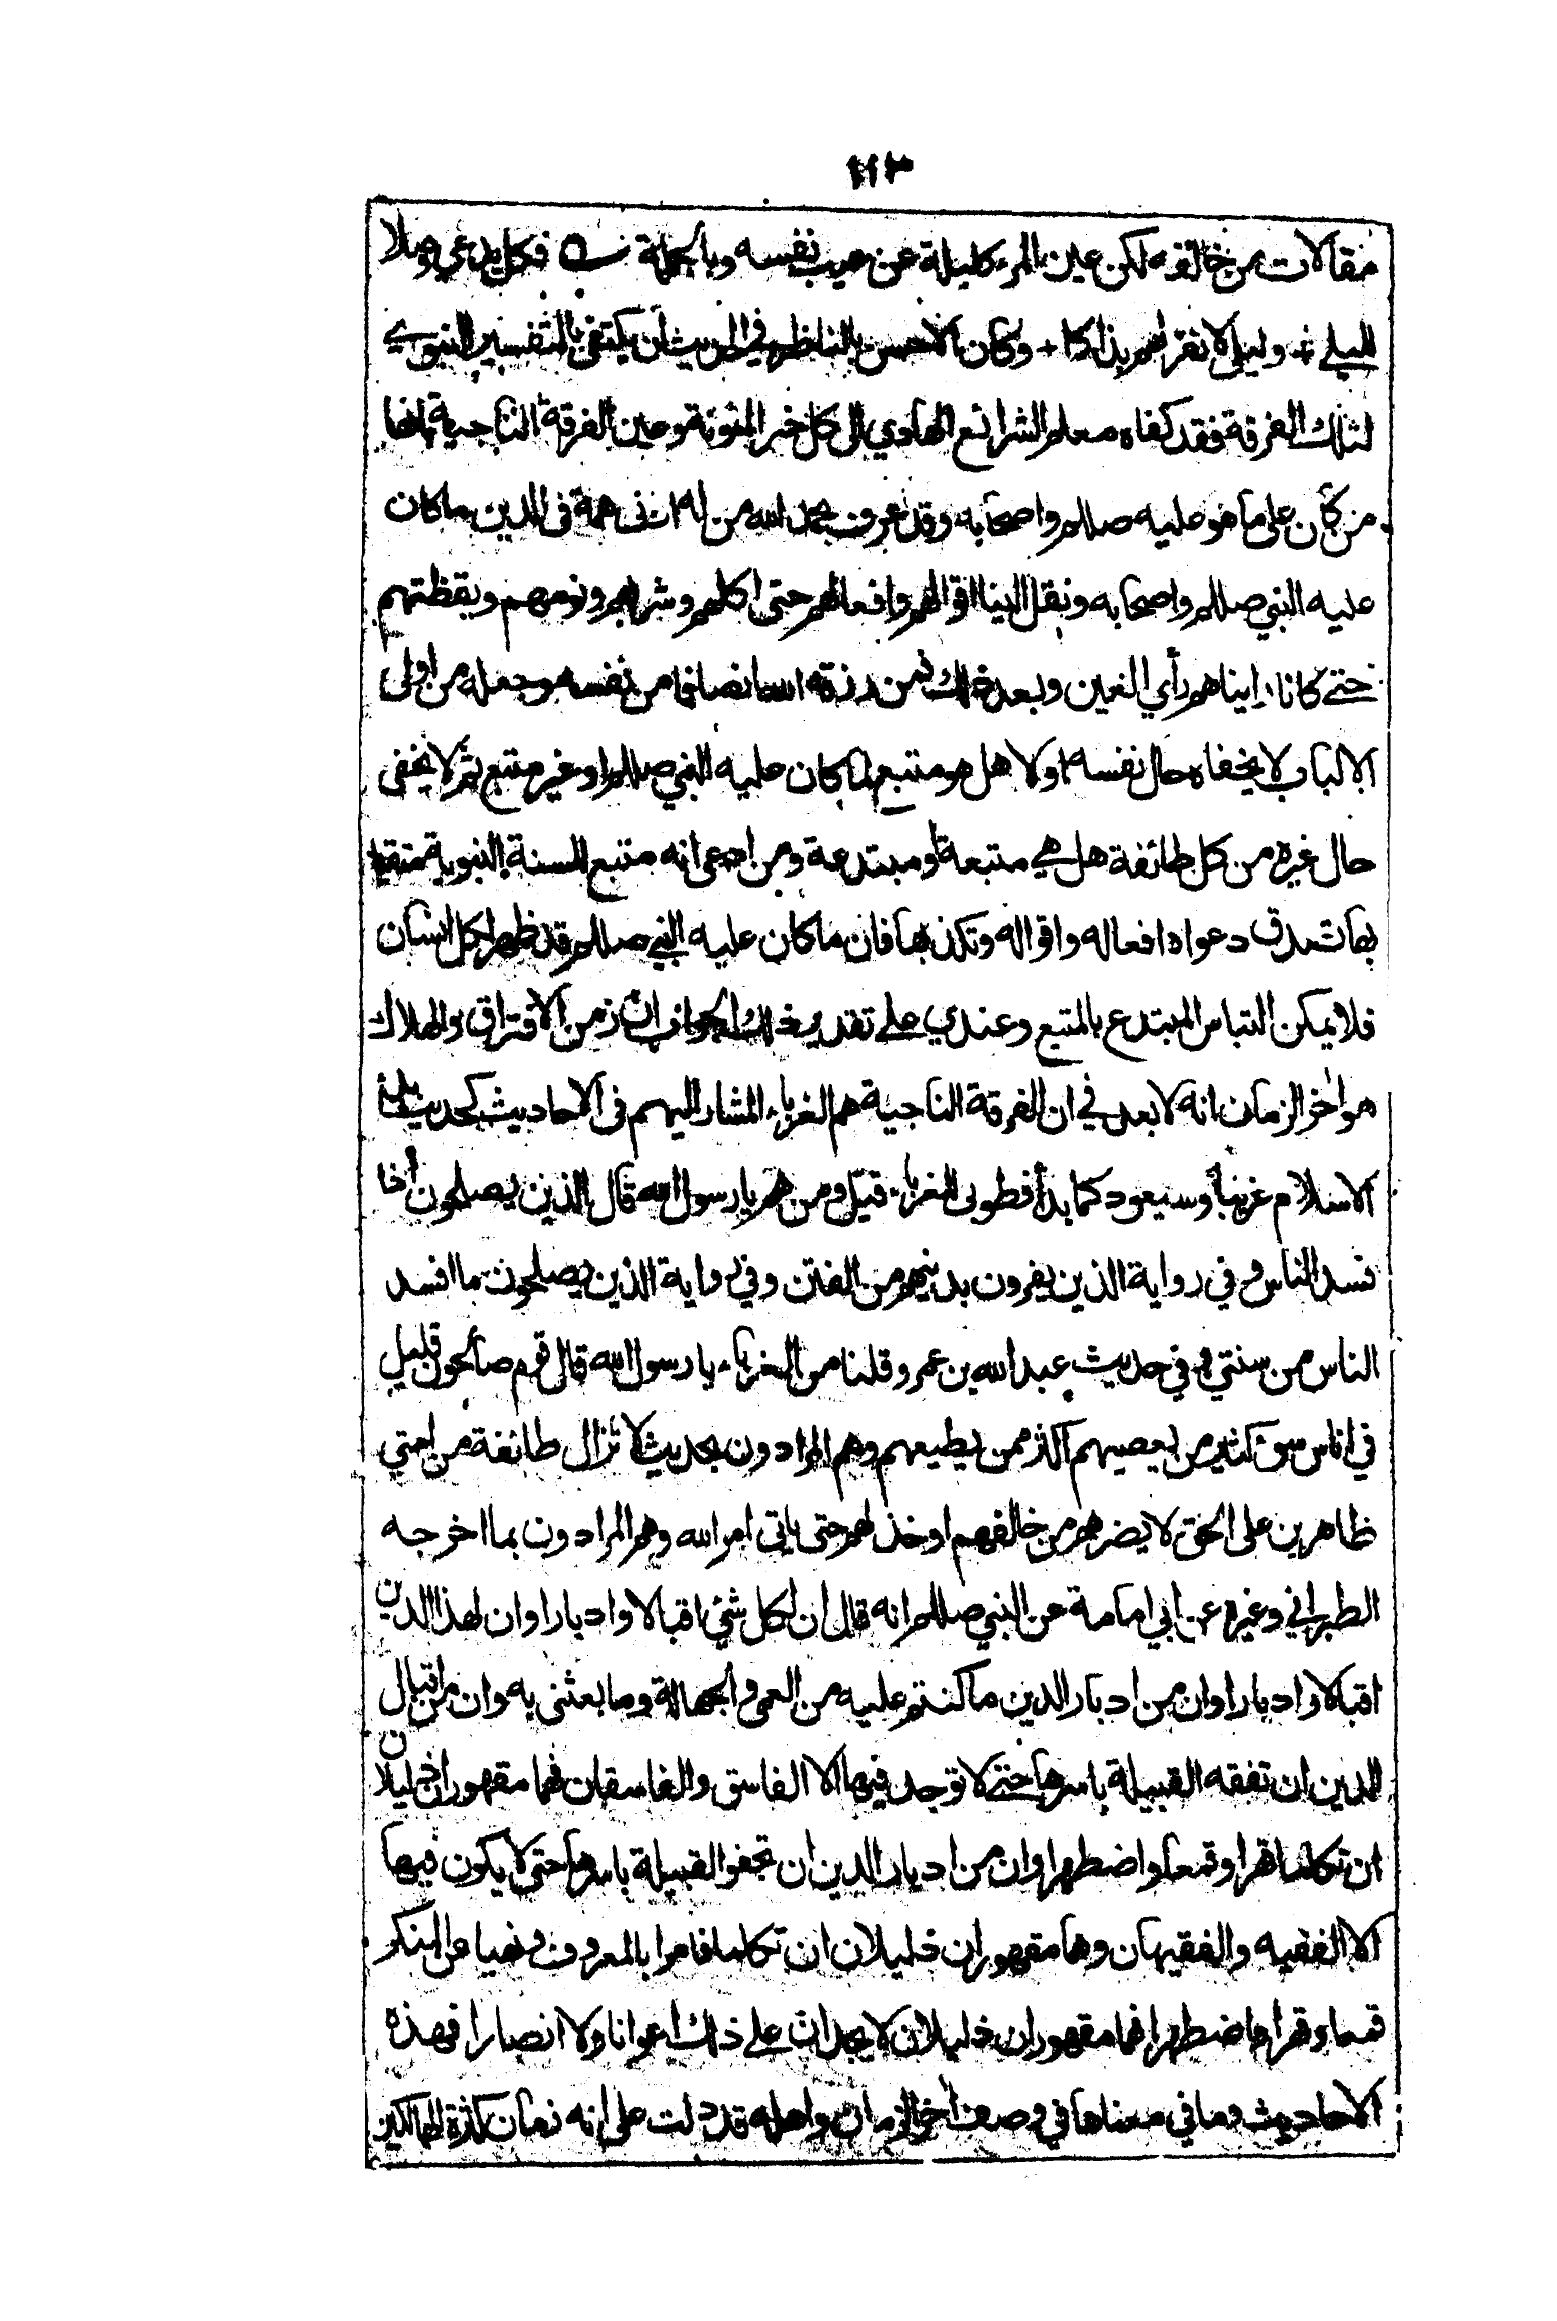 ١١٣
مقالات من خالفه لكن عين المرء كليلة عن عيب نفسه وبالجملة فكل يدعي وصلا
لليلى * وليلى لا تقر لهم بذاكا + وكان الاحسن بالناظر في الحديث أن يكتفي بالتفسير النبوي
لتلك الفرقة فقد كفاه معلم الشرائع الهادي الى كل خير المئونة وعين الفرقة الناجية بانها
من كان على ما هو عليه صللم واصحابه وقد عرف بحمد الله من له ادنى همة في الدين ما كان
عليه النبي صللم واصحابه ونقل الينا اقوالهم وافعالهم حتى اكلهم وشرابهم ونومهم ويقظتهم
حتى كانا رايناهم رأي العين وبعد ذلك فمن رزقه الله انصافا من نفسه وجعله من اولى
الالباب لا يخفاه حال نفسه اولا هل هو متبع لما كان عليه النبي صللم او غير متبع ثم لا يخفى
حال غيره من كل طائفة هل هي متبعة او مبتدعة ومن ادعى انه متبع للسنة النبوية متقيد
بها تصدق دعواه افعاله واقواله وتكذبها فان ما كان عليه النبي صللم قد ظهر لكل انسان
فلا يمكن التباس المبتدع بالمتبع وعندي على تقدير ذلك الجواب ان زمن الافتراق والهلاك
هو اخر الزمان انه لا بعد في ان الفرقة الناجية هم الغرباء المشار اليهم في الاحاديث كحديث بدأ
الاسلام غريبا وسيعود كما بدأ فطوبى للغرباء قيل ومن هم يا رسول الله قال الذين يصلحون اذا
فسد الناس وفي رواية الذين يفرون بدينهم من الفتن وفي رواية الذين يصلحون ما افسد
الناس من سنتي وفي حديث عبد الله بن عمرو قلنا من الغرباء يا رسول الله قال قوم صالحون قليل
في اناس سوء كثير من يعصيهم اكثر ممن يطيعهم وهم المرادون بحديث لا تزال طائفة من امتي
ظاهرين على الحق لا يضرهم من خالفهم او خذلهم حتى ياتي امر الله وهم المرادون بما اخرجه
الطبراني وغيره عن ابي امامة عن النبي صللم انه قال ان لكل شيء اقبالا وادبارا وان لهذا الدين
اقبالا وادبارا وان من ادبار الدين ما كنتم عليه من العمى والجهالة وما بعثني به وان من اقبال
الدين ان تفقه القبيلة باسرها حتى لا توجد فيها الا الفاسق والفاسقان فهما مقهوران ذليلان
ان تكلما قهرا وقمعا واضطهرا وان من ادبار الدين ان تجفو القبيلة باسرها حتى لا يكون فيها
الا الفقيه والفقيهان وهما مقهوران ذليلان ان تكلما فامرا بالمعروف ونهيا عن المنكر
قمعا وقهرا واضطهرا فهما مقهوران ذليلان لا يجدان على ذلك اعوانا ولا انصارا فهذه
الاحاديث وما في معناها في وصف اخر الزمان واهله قد دلت على انه زمان كثرة الهالكين